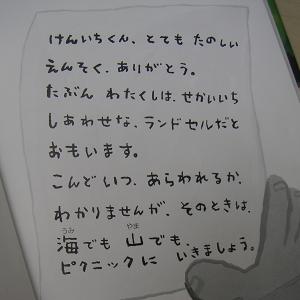 けんいちくん、とても たのしい
えんそく、ありがとう。
たぶん わたくしは、せかいいち
しあわせな、ランドセルだと
おもいます。
こんど いつ、あらわれるか、
わかりませんが、そのときは、
海でも 山でも、
うみ やま
ピクニックに いきましょう。